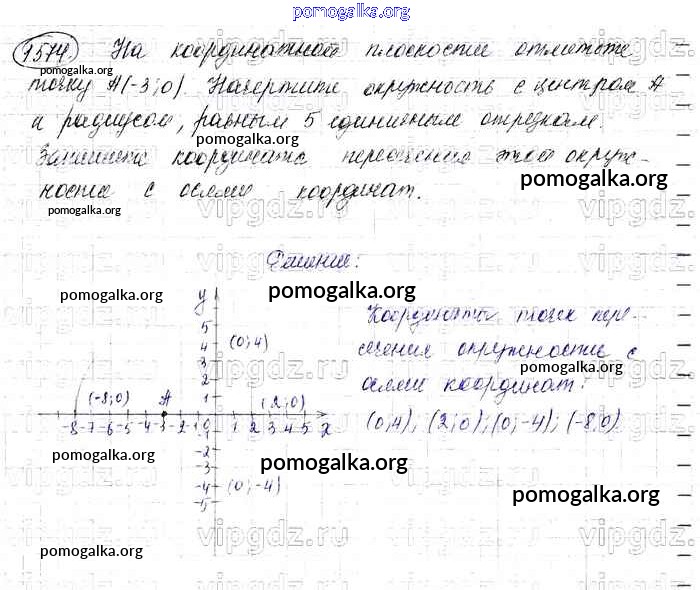 pomogalka.org
1574. На координатной плоскости отметьте
pomogalka.org
точку А(-3;0). Начертите окружность с центром А
и радиусом, равным 5 единичным отрезкам.
pomogalka.org
Запишите координаты пересечения этой окруж-
pomogalka.org
ности с осями координат.
pomogalka.org
vipgdz.ru vipgdz.ru vipgdz.ru
Решение:
pomogalka.org
pomogalka.org
Координаты точек пере-
сечения окружности с
pomogalka.org
осями координат:
(0;4); (2;0); (0;-4); (-8;0)
y
5
4 (0;4)
3
2
1
(-8;0) А (2;0)
-8 -7 -6 -5 -4 -3 -2 -1 0 1 2 3 4 5 x
-1
-2
-3
-4 (0;-4)
-5
pomogalka.org
pomogalka.org
pomogalka.org
pomogalka.org
vipgdz.ru vipgdz.ru vipgdz.ru